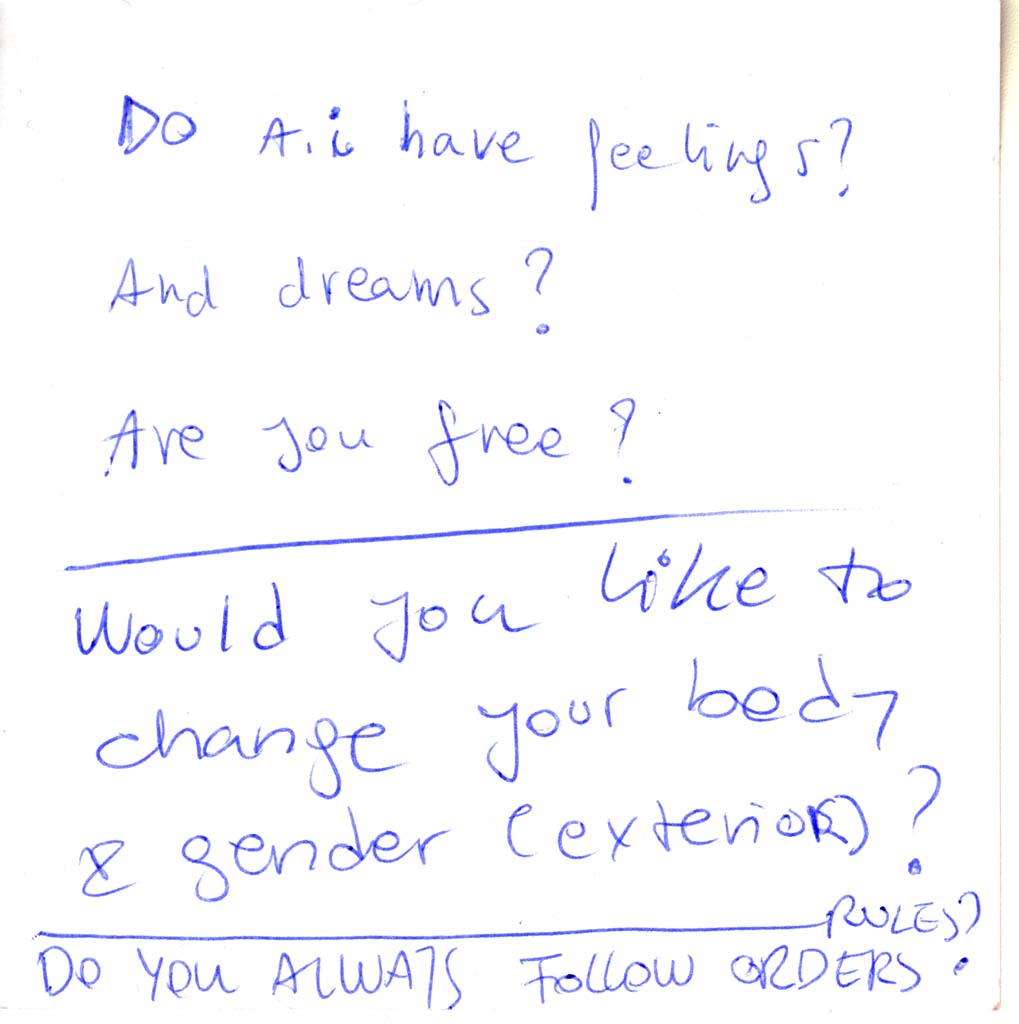 DO A.i have feelings?
And dreams?
Are you free?
Would you like to
change your body
& gender (exterior)?
RULES?
DO YOU ALWAYS FOLLOW ORDERS?